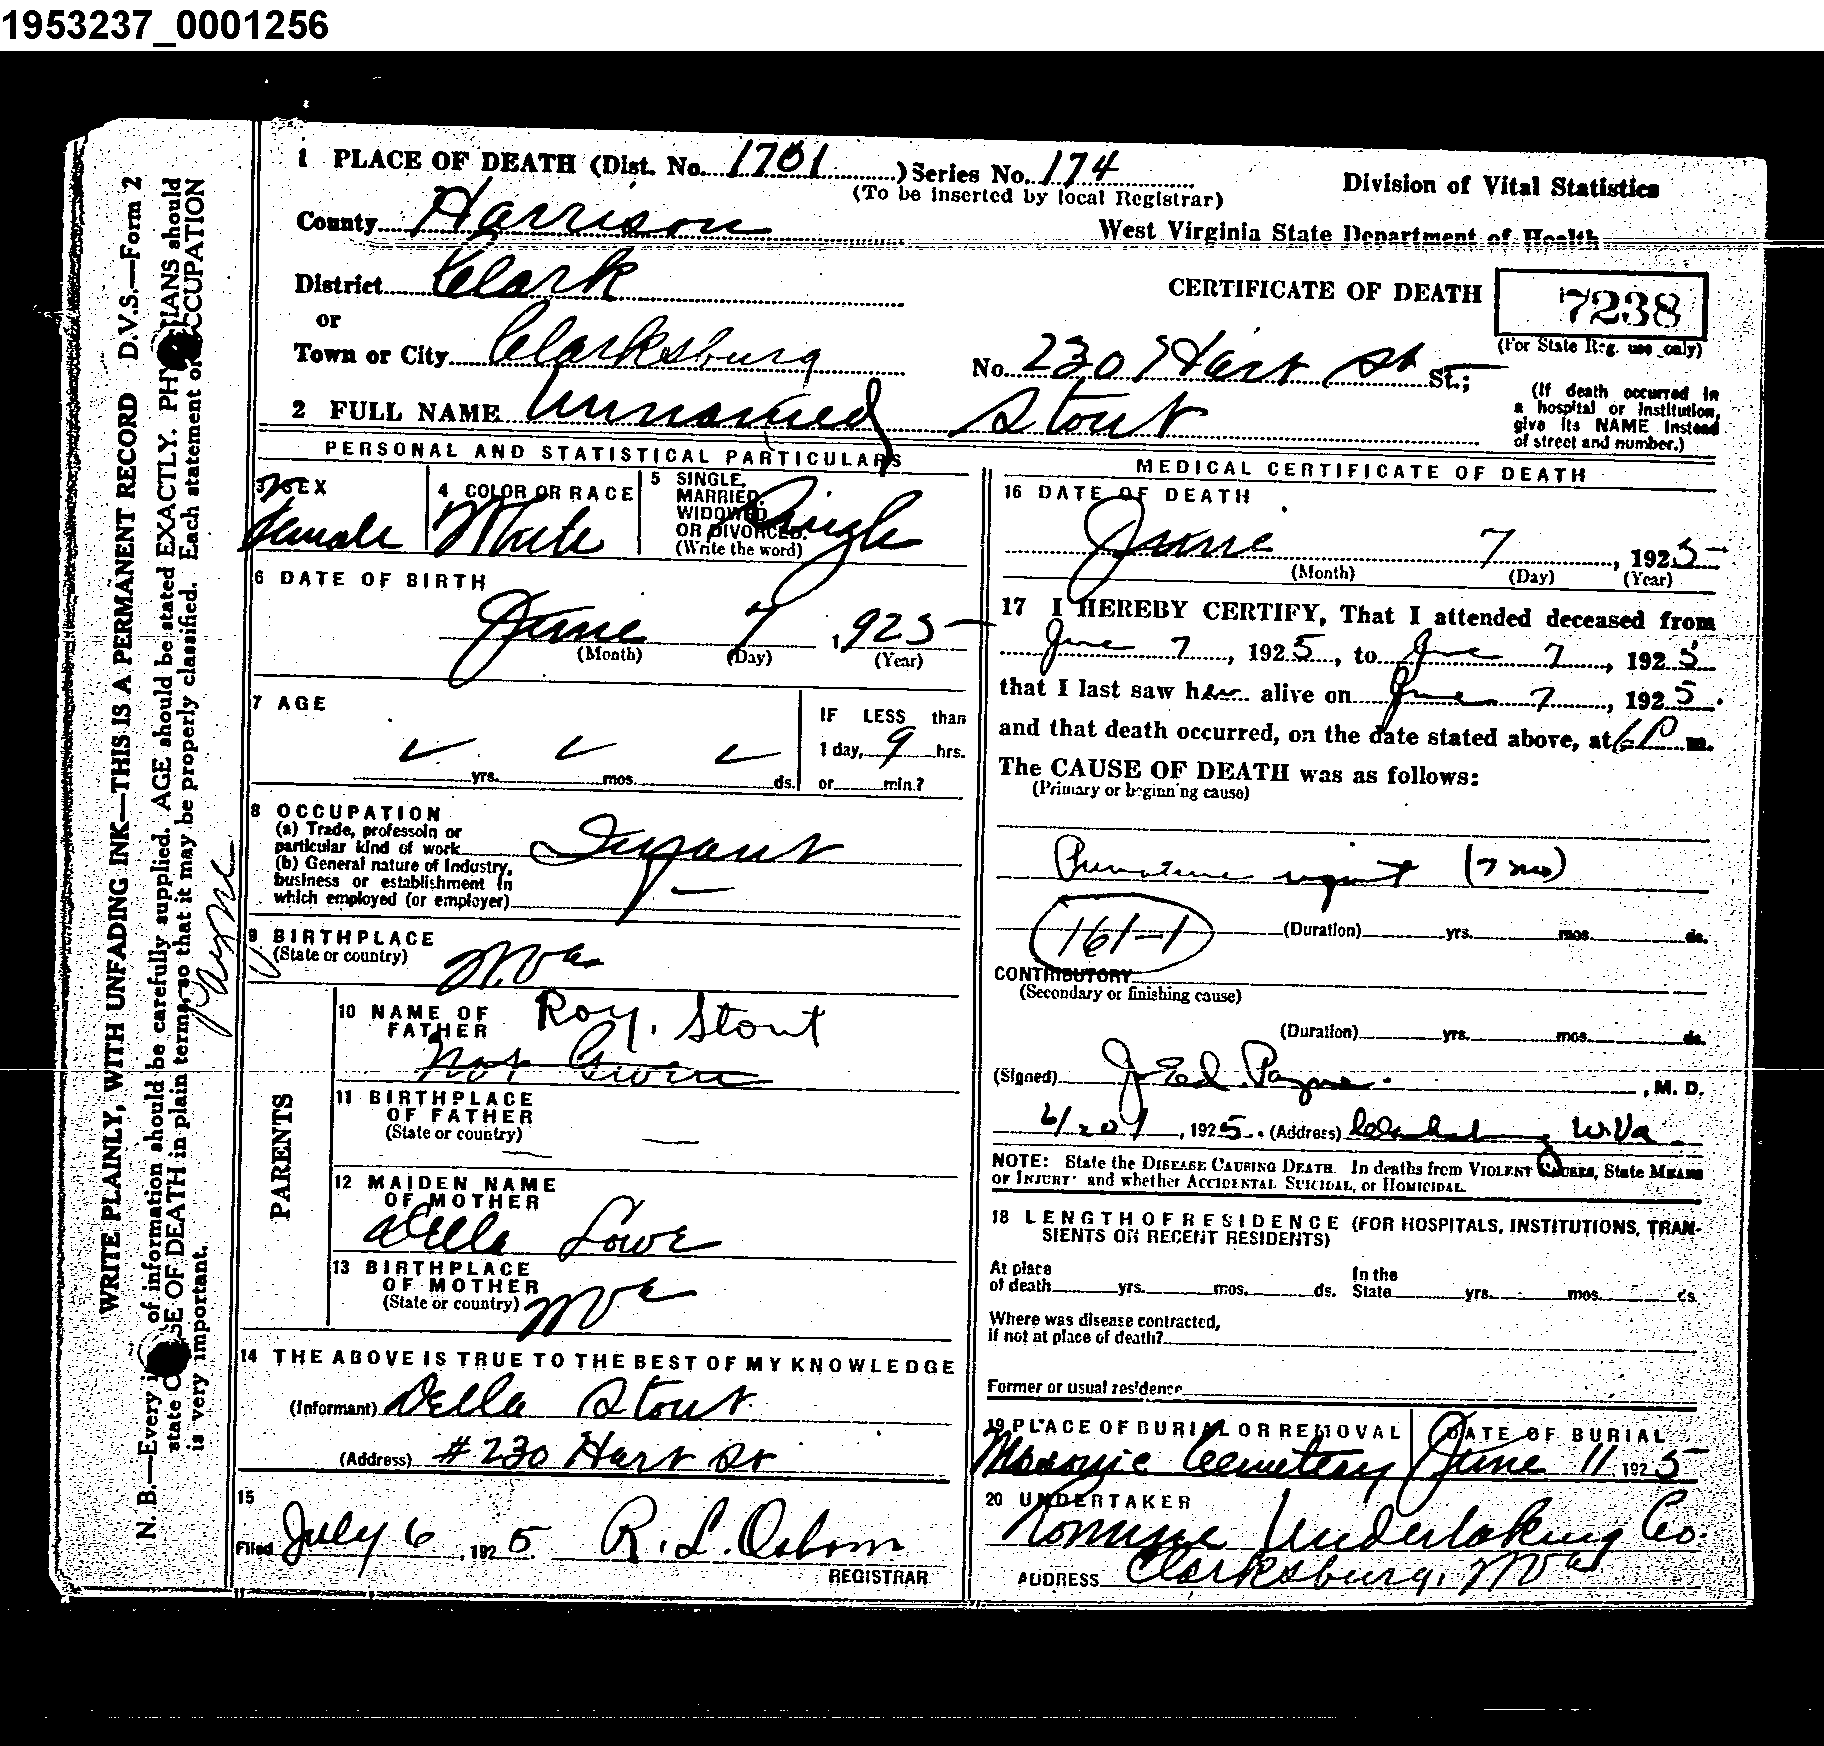 1953237_0001256
WRITE PLAINLY, WITH UNFADING INK—THIS IS A PERMANENT RECORD D.V.S.—Form 2
N. B.—Every of information should be carefully supplied. AGE should be stated EXACTLY. PHY IANS should
state C SE OF DEATH in plain terms, so that it may be properly classified. Each statement of OCCUPATION
is very important.
Payne
1 PLACE OF DEATH (Dist. No. 1701 ) Series No. 174
(To be inserted by local Registrar)
Division of Vital Statistics
County Harrison
West Virginia State Department of Health
District Clark
CERTIFICATE OF DEATH
7238
(For State Reg. use only)
or
Town or City Clarksburg
No. 230 Hart St St.;
(If death occurred in
a hospital or institution,
give its NAME instead
of street and number.)
2 FULL NAME Unnamed Stout
PERSONAL AND STATISTICAL PARTICULARS
3 SEX
Female
4 COLOR OR RACE
White
5 SINGLE,
MARRIED,
WIDOWED
OR DIVORCED.
(Write the word)
Single
6 DATE OF BIRTH
June 7, 1925
(Month) (Day) (Year)
7 AGE
yrs. mos. ds.
IF LESS than
1 day, 9 hrs.
or min.?
8 OCCUPATION
(a) Trade, professoin or
particular kind of work
Infant
(b) General nature of Industry,
business or establishment in
which employed (or employer) —
9 BIRTHPLACE
(State or country)
W.Va
PARENTS
10 NAME OF
FATHER
Roy. Stout
Not Given
11 BIRTHPLACE
OF FATHER
(State or country) —
12 MAIDEN NAME
OF MOTHER
Della Lowe
13 BIRTHPLACE
OF MOTHER
(State or country) W Va
14 THE ABOVE IS TRUE TO THE BEST OF MY KNOWLEDGE
(Informant) Della Stout
(Address) #230 Hart St
15
Filed July 6, 1925 R. L. Osborn
REGISTRAR
MEDICAL CERTIFICATE OF DEATH
16 DATE OF DEATH
June 7, 1925
(Month) (Day) (Year)
17 I HEREBY CERTIFY, That I attended deceased from
June 7, 1925, to June 7, 1925
that I last saw her alive on June 7, 1925.
and that death occurred, on the date stated above, at 6 P m.
The CAUSE OF DEATH was as follows:
(Primary or beginning cause)
Premature infant (7 mo)
161-1
(Duration) yrs. mos. ds.
CONTRIBUTORY
(Secondary or finishing cause)
(Duration) yrs. mos. ds.
(Signed) J. Ed. Payne. , M. D.
6/20/, 1925. (Address) Clarksburg W.Va.
NOTE: State the DISEASE CAUSING DEATH. In deaths from VIOLENT CAUSES, State MEANS
OF INJURY and whether ACCIDENTAL SUICIDAL, or HOMICIDAL.
18 LENGTH OF RESIDENCE (FOR HOSPITALS, INSTITUTIONS, TRAN-
SIENTS OR RECENT RESIDENTS)
At place
of death yrs. mos. ds.
In the
State yrs. mos. ds.
Where was disease contracted,
if not at place of death?
Former or usual residence
19 PLACE OF BURIAL OR REMOVAL
Masonic Cemetery
DATE OF BURIAL
June 11 1925
20 UNDERTAKER
Undertaking Co.
ADDRESS Clarksburg, W Va